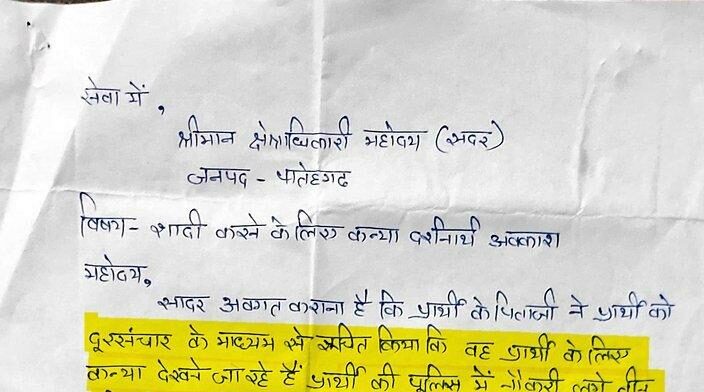 सेवा में,
श्रीमान क्षेत्राधिकारी महोदय (सदर)
जनपद - फतेहगढ
विषय- शादी करने के लिए कन्या दर्शनार्थ अवकाश
महोदय,
सादर अवगत कराना है कि प्रार्थी के पिताजी ने प्रार्थी को
दूरसंचार के माध्यम से सूचित किया कि वह प्रार्थी के लिए
कन्या देखने जा रहे हैं प्रार्थी की पुलिस में नौकरी लगे तीन